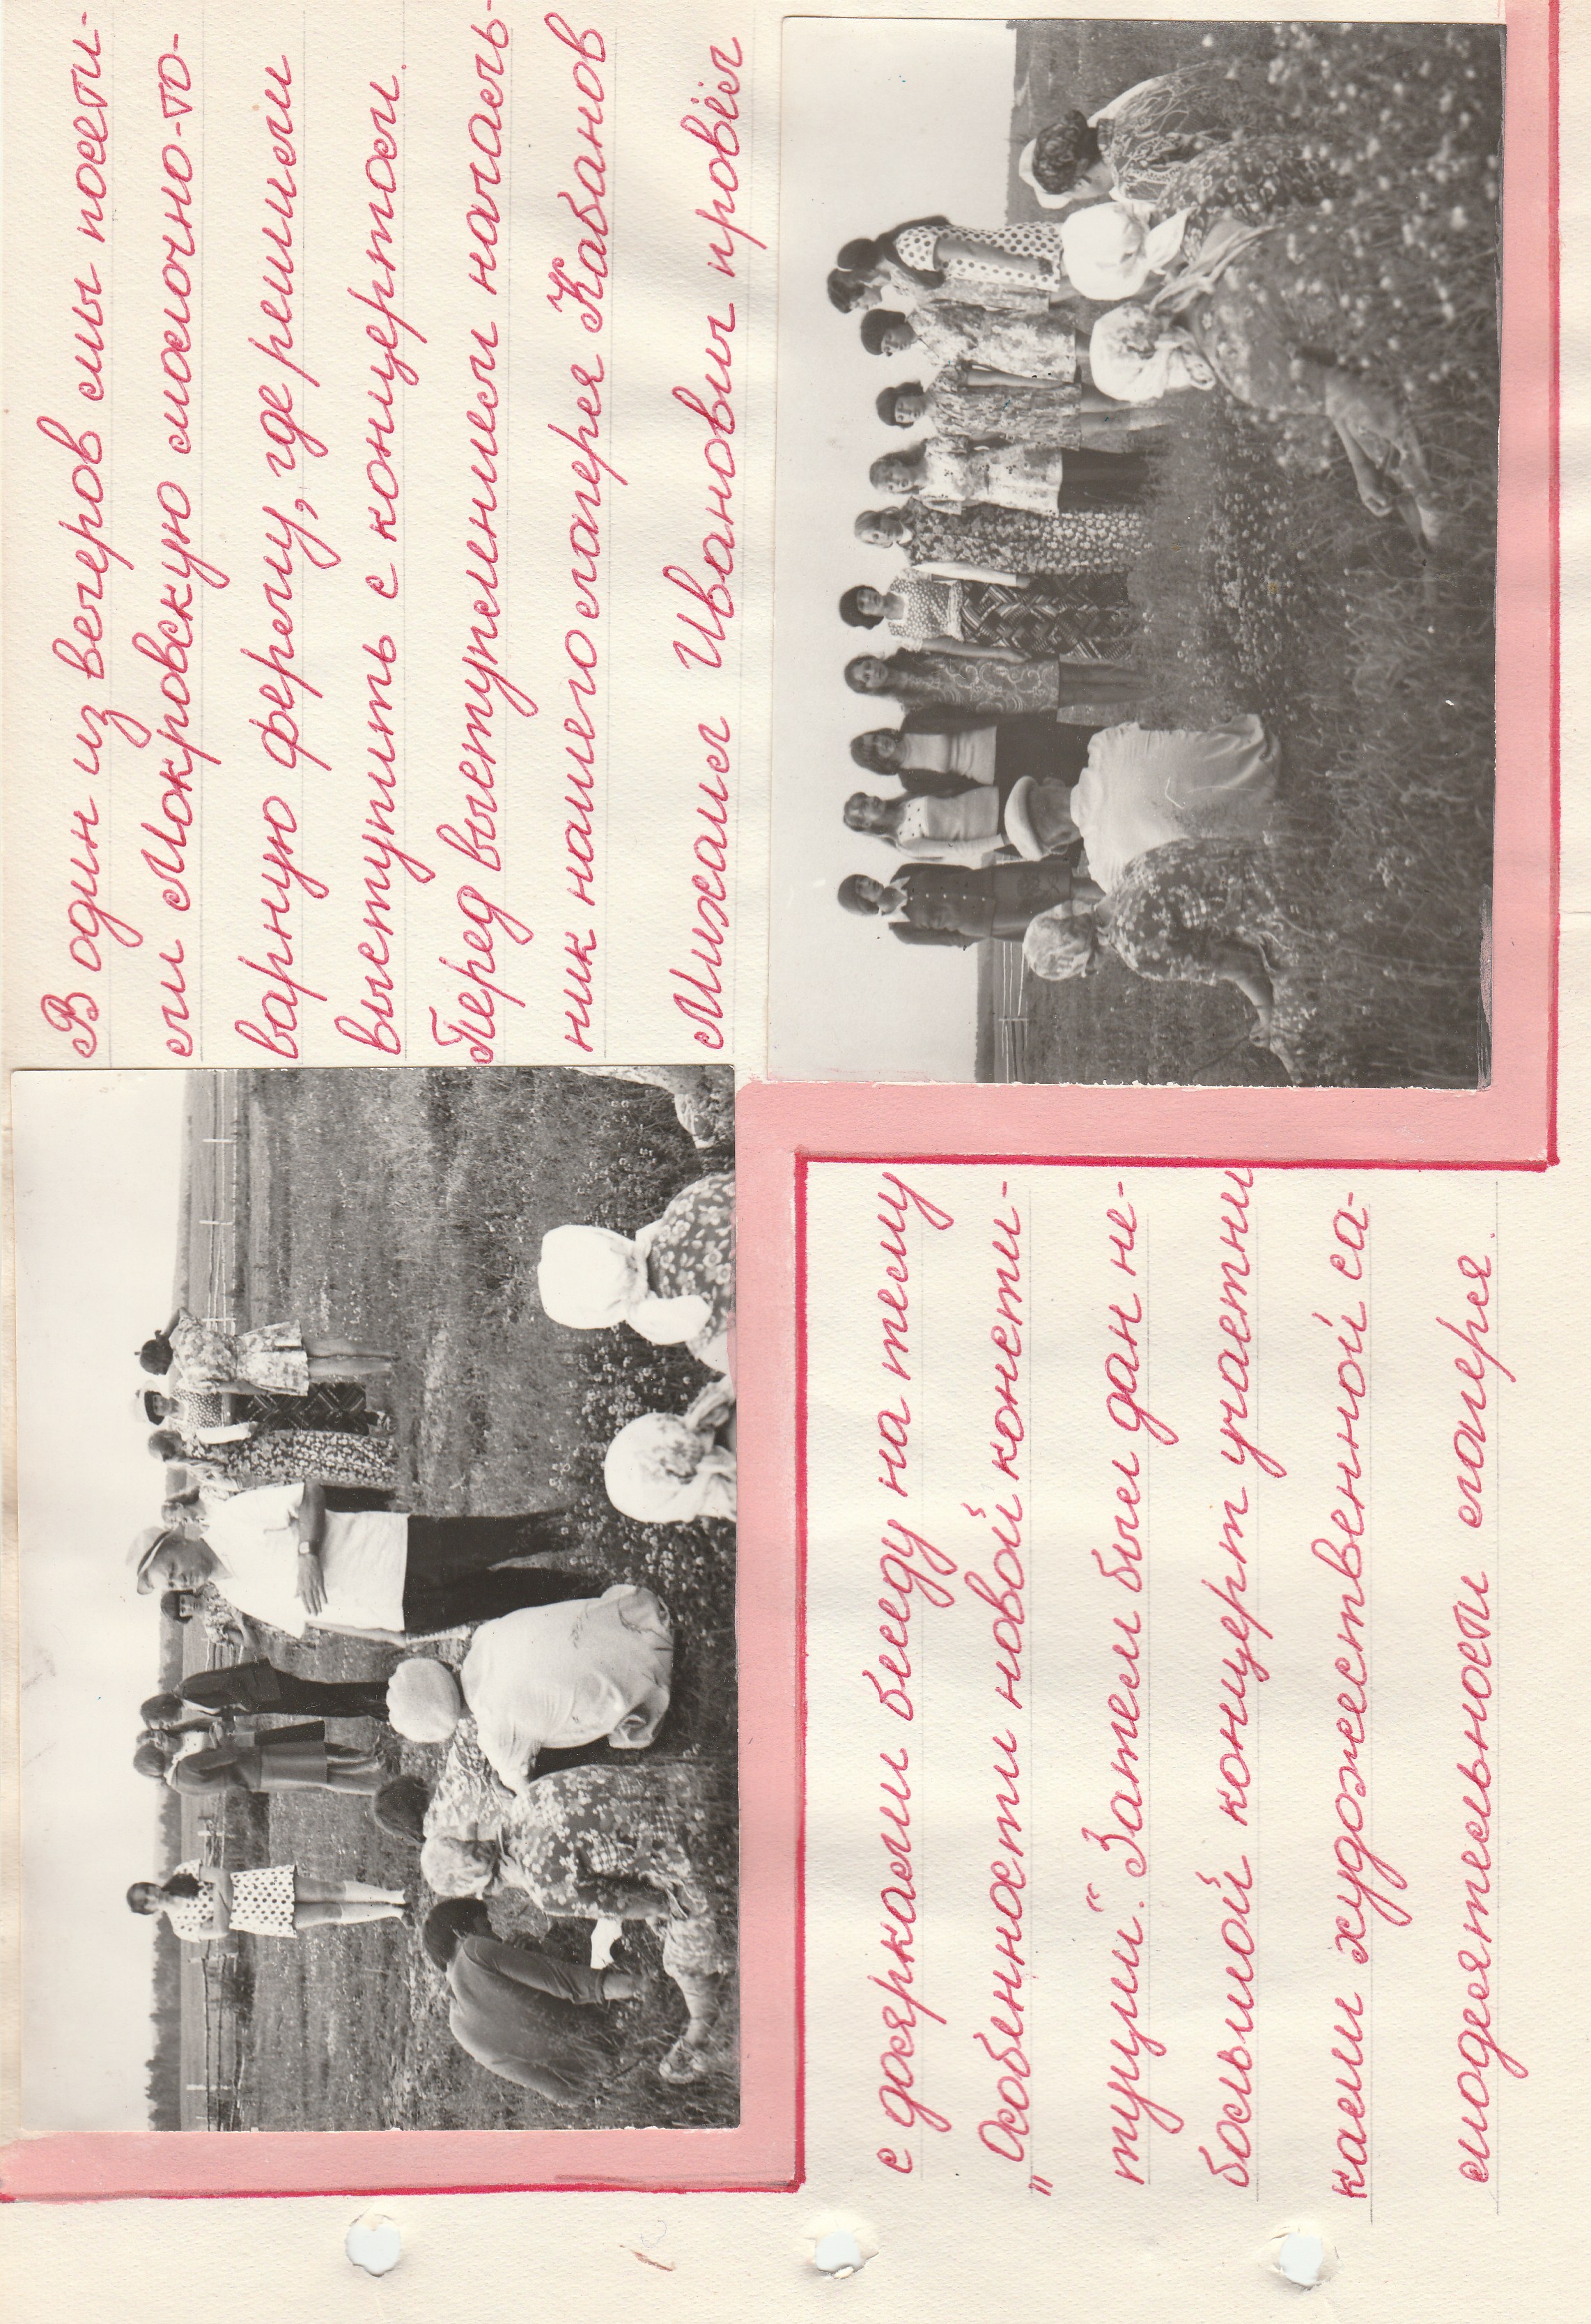 В один из вечеров мы посети-
ли Мокровскую молочно-то-
варную ферму, где решили
выступить с концертом.
Перед выступлением началь-
ник нашего лагеря Кабанов
Михаил Иванович провёл
с доярками беседу на тему
„Особенности новой консти-
туции". Затем был дан не-
большой концерт участни
ками художественной са-
модеятельности лагеря.